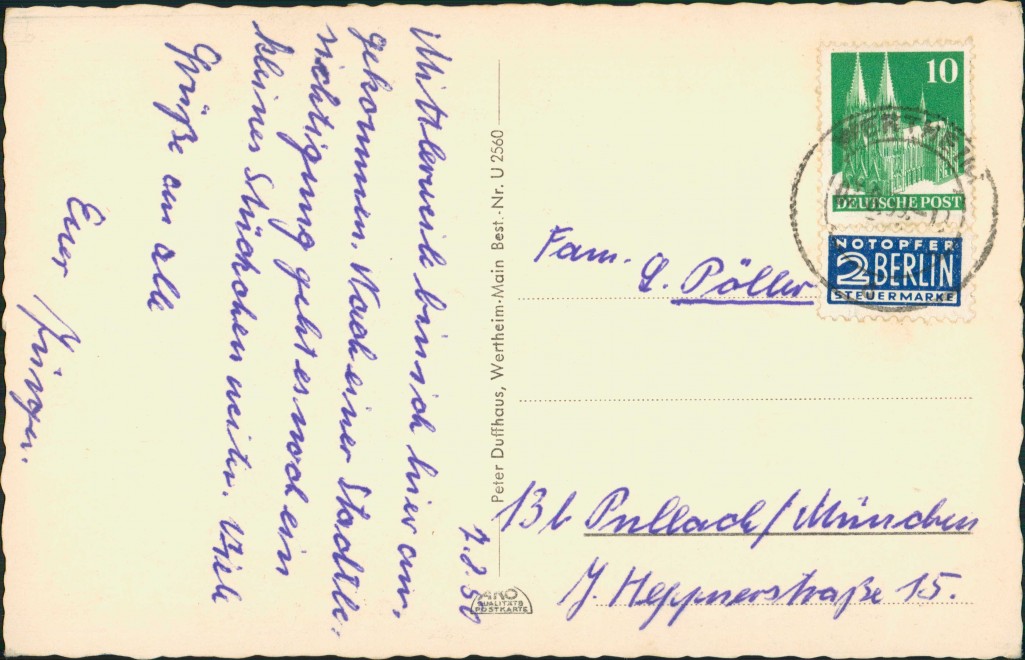 7.8.50
Mittlerweile bin ich hier an-
gekommen. Nach einer Stadtbe-
sichtigung geht es noch ein
kleines Stückchen weiter. Viele
Grüße an alle
Euer
Jürgen.
Peter Duffhaus, Wertheim-Main Best.-Nr. U 2560
ARO
QUALITÄTS
POSTKARTE
10
DEUTSCHE POST
WERTHEIM
NOTOPFER
2 BERLIN
STEUERMARKE
Fam.
L. Pöller
13b Pullach/München
J. Heppnerstraße 15.